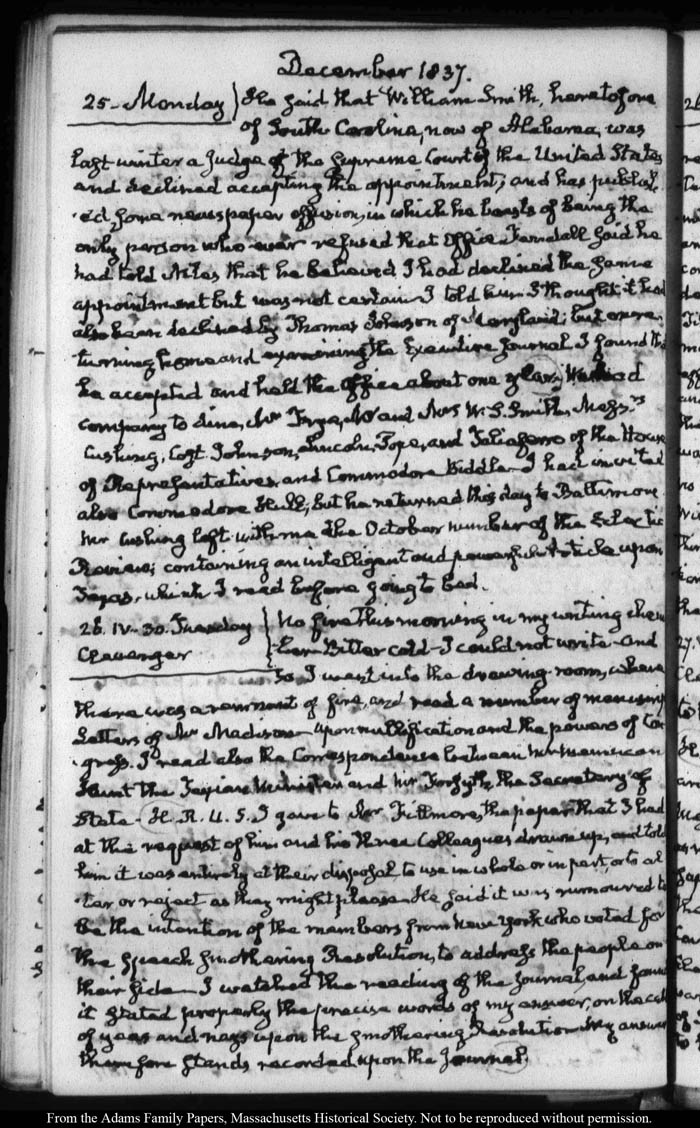 December 1837.
25 - Monday } He said that William Smith, heretofore
of South Carolina, now of Alabama, was
last winter a Judge of the Supreme Court of the United States
and declined accepting the appointment; and has publish
ed some newspaper effusion, in which he boasts of being the
only person who ever refused that Office. Tendall said he
had told Niles that he believed I had declined the same
appointment but was not certain. I told him I thought it had
also been declined by Thomas Johnson of Maryland; but on re
turning home and examining the Executive Journal I found that
he accepted and held the Office about one year. We had
company to dine, Mr Frye, Mr and Mrs W. S. Smith, Messrs
Cushing, Cost Johnson, Lincoln, Pope, and Taliaferro of the House
of Representatives and Commodore Biddle. I had invited
also Commodore Hull; but he returned this day to Baltimore.
Mr Cushing left with me the October number of the Eclectic
Review; containing an intelligent and powerful Article upon
Texas, which I read before going to bed.
26. IV-30. Tuesday } No fire this morning in my writing cham
Clavenger ber. Bitter cold - I could not write - and
so I went into the drawing room, where
there was a remnant of fire, and read a number of manuscript
Letters of Mr Madison upon nullification and the powers of Con
gress. I read also the Correspondence between Mr Memucan
Hunt the Texian Minister and Mr Forsyth the Secretary of
State - H. R. U. S. I gave to Mr Fillmore, the paper that I had
at the request of him and his three Colleagues drawn up, and told
him it was entirely at their disposal to use in whole or in part, or to al
ter or reject as they might please. He said it was rumoured to
be the intention of the members from New York who voted for
the speech smothering Resolution, to address the people on
their side - I watched the reading of the Journal, and found
it stated properly the precise words of my answer, on the call
of yeas and nays upon the smothering Resolution. My answer
therefore stands recorded upon the Journal.
From the Adams Family Papers, Massachusetts Historical Society. Not to be reproduced without permission.